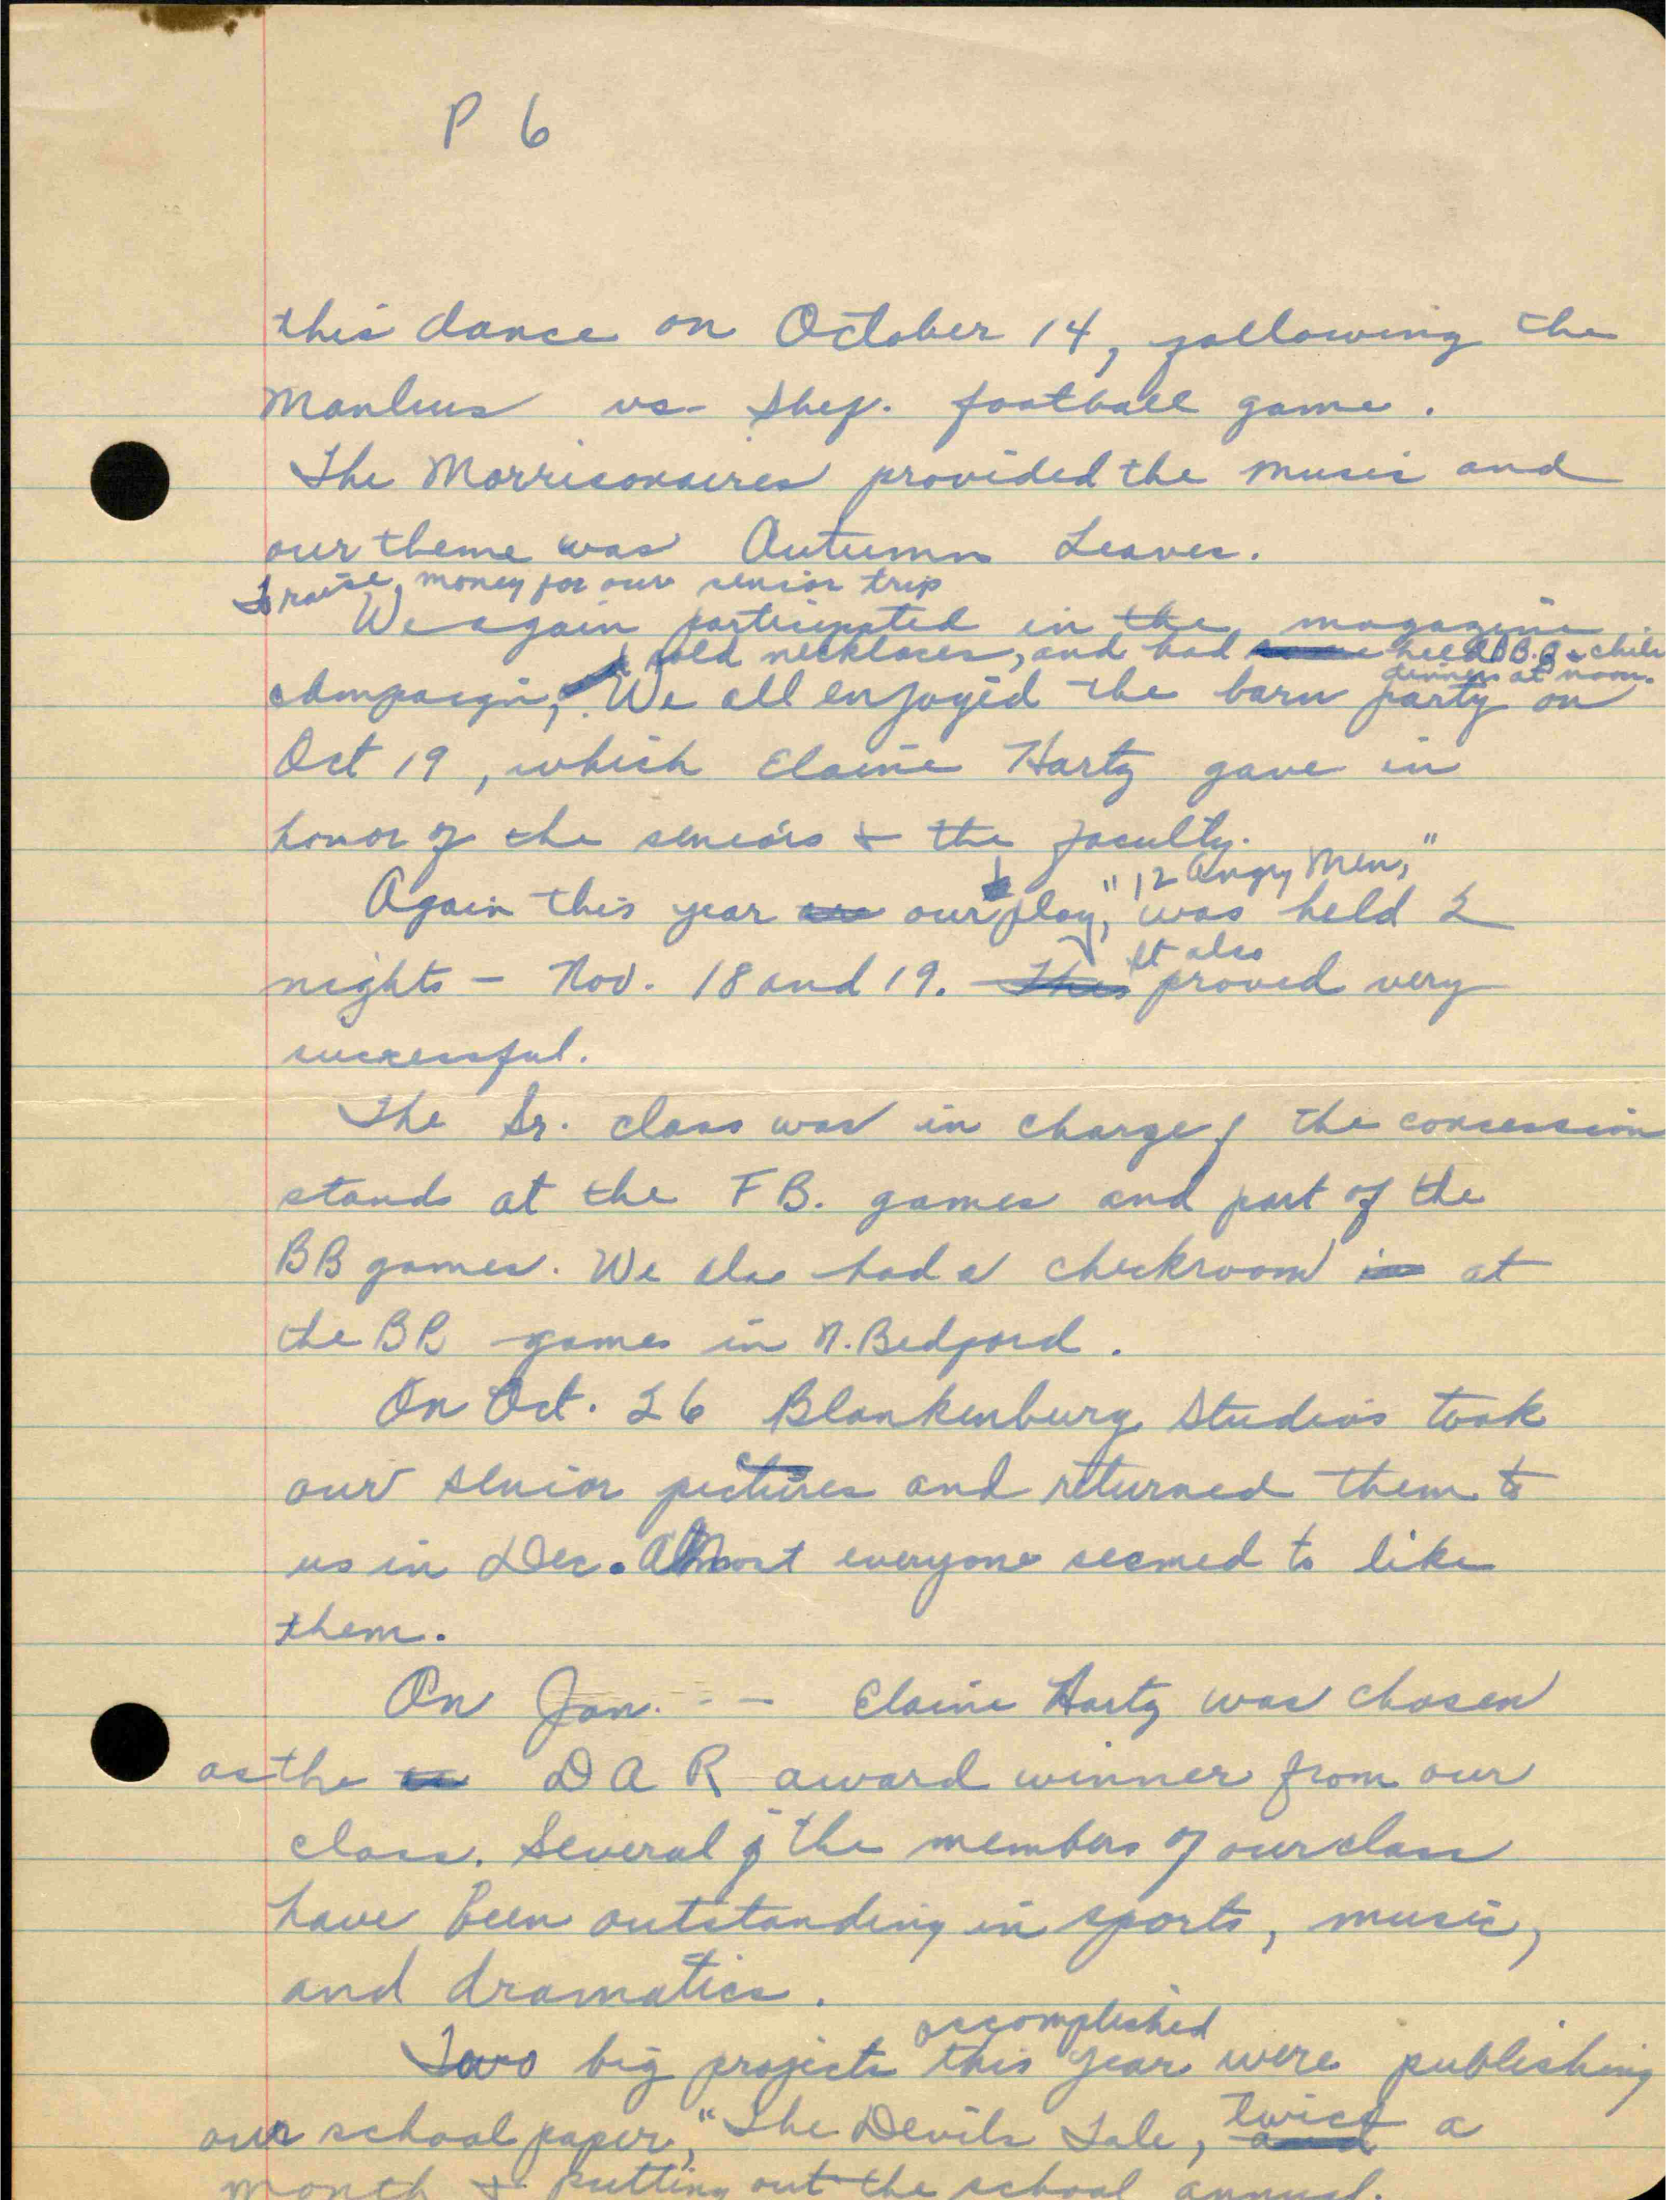 P 6
this dance on October 14, following the
Manlius vs. Shef. football game.
The Morrisonaires provided the music and
our theme was Autumn Leaves.
To raise money for our senior trip
We again participated in the magazine
sold necklaces, and had held B.B. & chili
dinners at noon.
campaign, We all enjoyed the barn party on
Oct 19, which Elaine Hartz gave in
honor of the seniors & the faculty.
"12 Angry Men,"
Again this year our play, was held 2
It also
nights - Nov. 18 and 19. This proved very
successful.
The Sr. class was in charge of the concession
stands at the FB. games and part of the
BB games. We also had a checkroom in at
the BB games in N. Bedford.
On Oct. 26 Blankenburg Studios took
our senior pictures and returned them to
us in Dec. Almost everyone seemed to like
them.
On Jan. - - Elaine Hartz was chosen
as the DAR award winner from our
class. Several of the members of our class
have been outstanding in sports, music,
and dramatics.
accomplished
Two big projects this year were publishing
twice
our school paper, "The Devils Tale, and a
month & putting out the school annual.